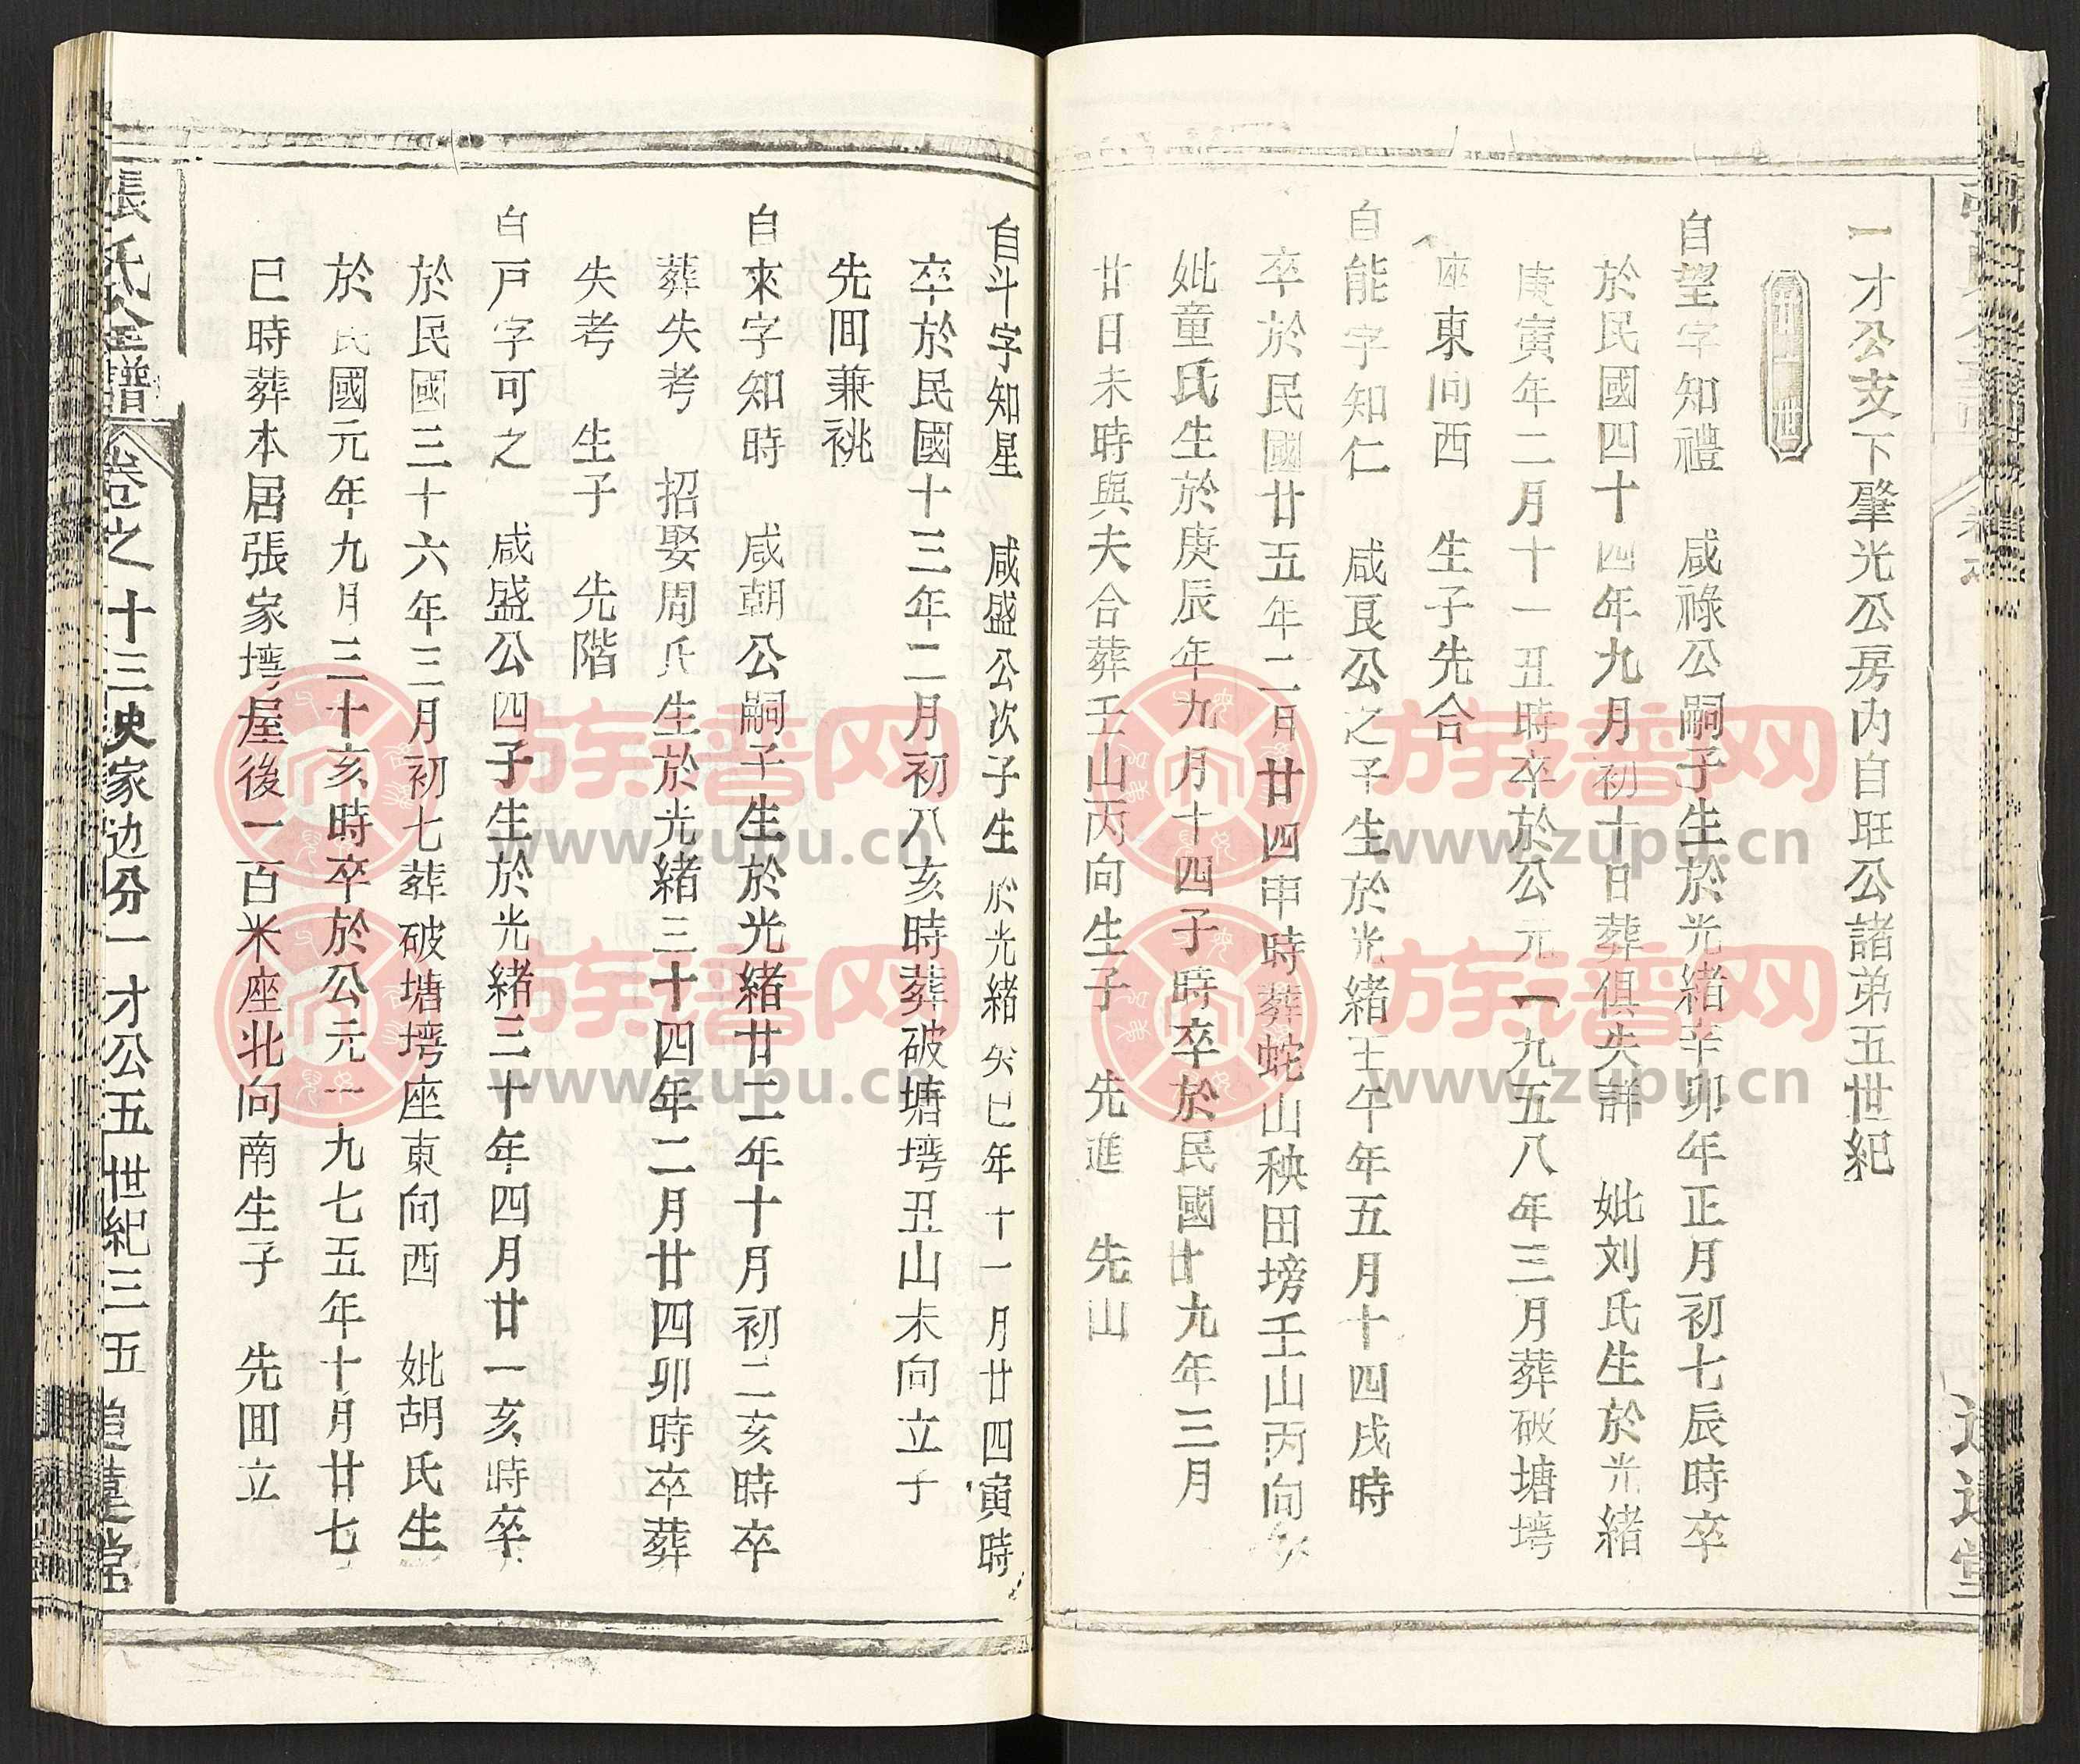 一才公支下肇光公房内自旺公諸弟五世紀
世
自望字知禮　咸祿公嗣子生於光緒辛卯年正月初七辰時卒
於民國四十四年九月初十日葬俱失詳　妣刘氏生於光緒
庚寅年二月十一丑時卒於公元一九五八年三月葬破塘塆
座東向西　生子先合
自能字知仁　咸良公之子生於光緒壬午年五月十四戌時
卒於民國廿五年二月廿四申時葬蛇山秧田塝壬山丙向
妣童氏生於庚辰年九月十四子時卒於民國廿九年三月
廿日未時與夫合葬壬山丙向生子　先進　先山
自斗字知星　咸盛公次子生於光緒癸巳年十一月廿四寅時
卒於民國十三年二月初八亥時葬破塘塆丑山未向立子
先囬兼祧
自來字知時　咸朝公嗣子生於光緒廿二年十月初二亥時卒
葬失考　招娶周氏生於光緒三十四年二月廿四卯時卒葬
失考　生子　先階
自戸字可之　咸盛公四子生於光緒三十年四月廿一亥時卒
於民國三十六年三月初七葬破塘塆座東向西　妣胡氏生
於民國元年九月三十亥時卒於公元一九七五年十月廿七
巳時葬本居張家塆屋後一百米座北向南生子　先囬立
張氏全譜　卷之十三　史家边分一才公五世紀　三五　追遠堂
族谱网
www.zupu.cn
族谱网
www.zupu.cn
族谱网
www.zupu.cn
族谱网
www.zupu.cn